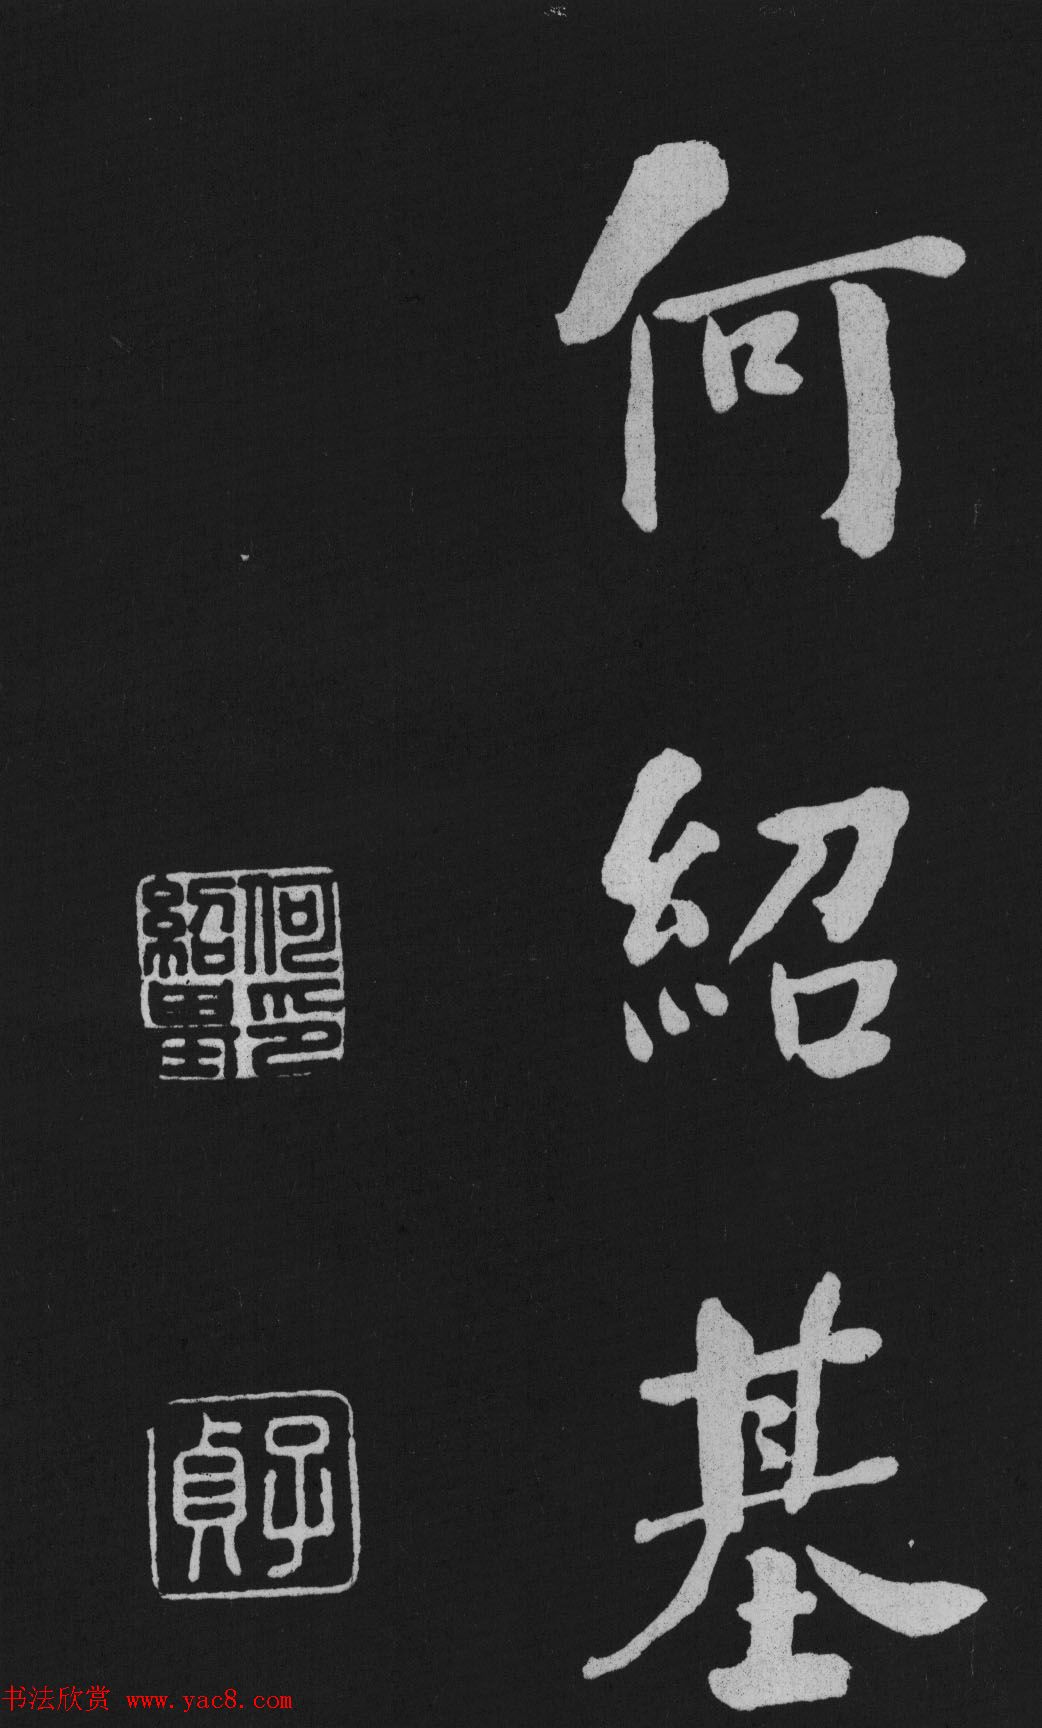 何紹基
何紹基印
子貞
书法欣赏 www.yac8.com